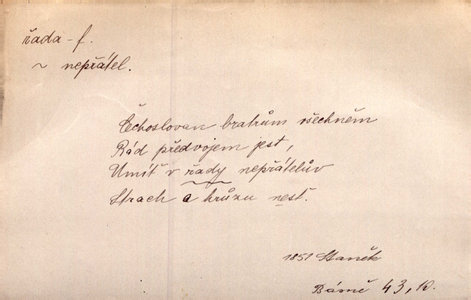 řada - f.
~ nepřátel.
Čechoslovan bratrům všechněm
Rád předvojem jest,
Umíť v řady nepřátelův
Strach a hrůzu nest.
1851 Staněk
Básně 43, 10.